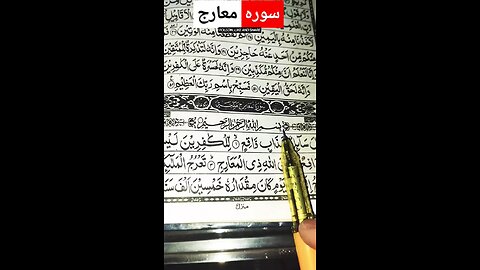 سورہ معارج
FOLLOW, LIKE AND SHARE
لَاَخَذْنَا مِنْهُ بِالْيَمِيْنِ
ثُمَّ لَقَطَعْنَا مِنْهُ الْوَتِيْنَ
فَمَا مِنْكُمْ مِّنْ اَحَدٍ عَنْهُ حٰجِزِيْنَ وَاِنَّهٗ لَتَذْكِرَةٌ لِّلْمُتَّقِيْنَ
وَاِنَّا لَنَعْلَمُ اَنَّ مِنْكُمْ مُّكَذِّبِيْنَ وَاِنَّهٗ لَحَسْرَةٌ عَلَى الْكٰفِرِيْنَ
وَاِنَّهٗ لَحَقُّ الْيَقِيْنِ فَسَبِّحْ بِاسْمِ رَبِّكَ الْعَظِيْمِ
بِسْمِ اللّٰهِ الرَّحْمٰنِ الرَّحِيْمِ
بِعَذَابٍ وَّاقِعٍ لِّلْكٰفِرِيْنَ لَيْسَ
اللّٰهِ ذِي الْمَعَارِجِ تَعْرُجُ الْمَلٰٓئِكَةُ
يَوْمٍ كَانَ مِقْدَارُهٗ خَمْسِيْنَ اَلْفَ سَنَةٍ